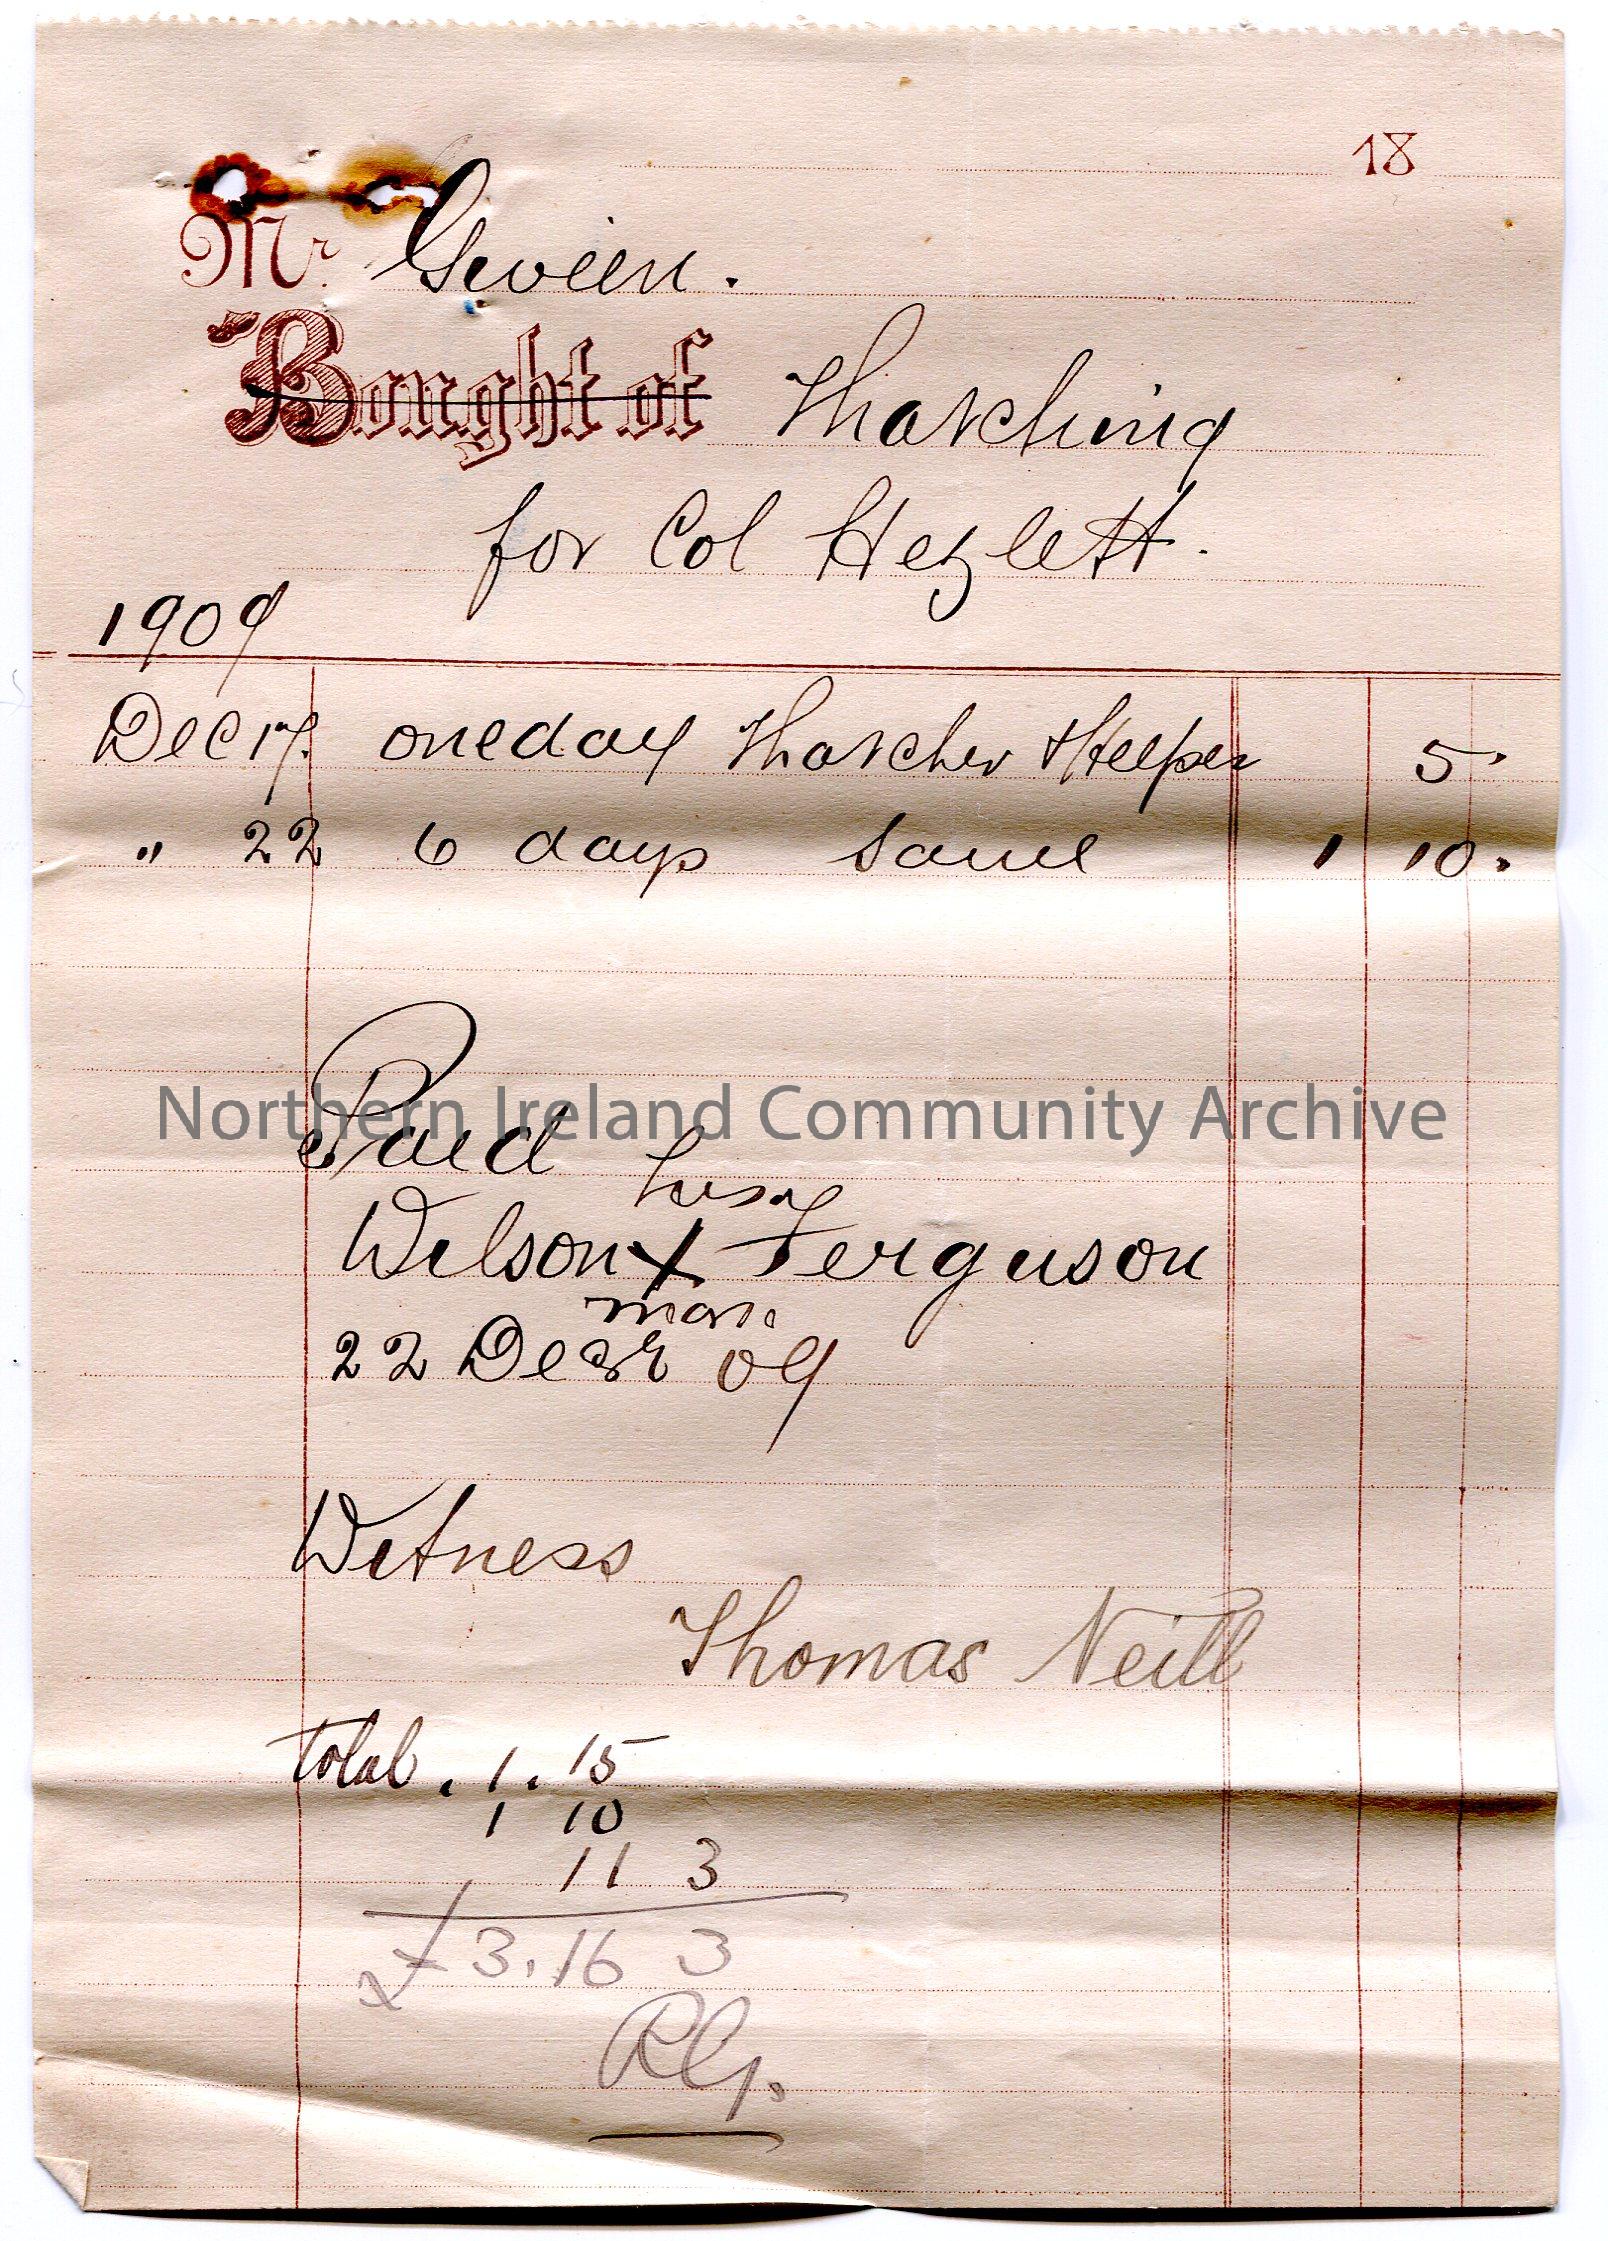 18
Mr. Gwien.
Bought of Thatching
for Col Hezlett.
1909
Dec 17. one day Thatcher & Helper 5.
" 22 6 days same 1 10.
Paid
his
Wilson X Ferguson
mark
22 Decbr 09
Witness
Thomas Neill
total. 1. 15
1 10
11 3
£3.16 3
RG.
Northern Ireland Community Archive